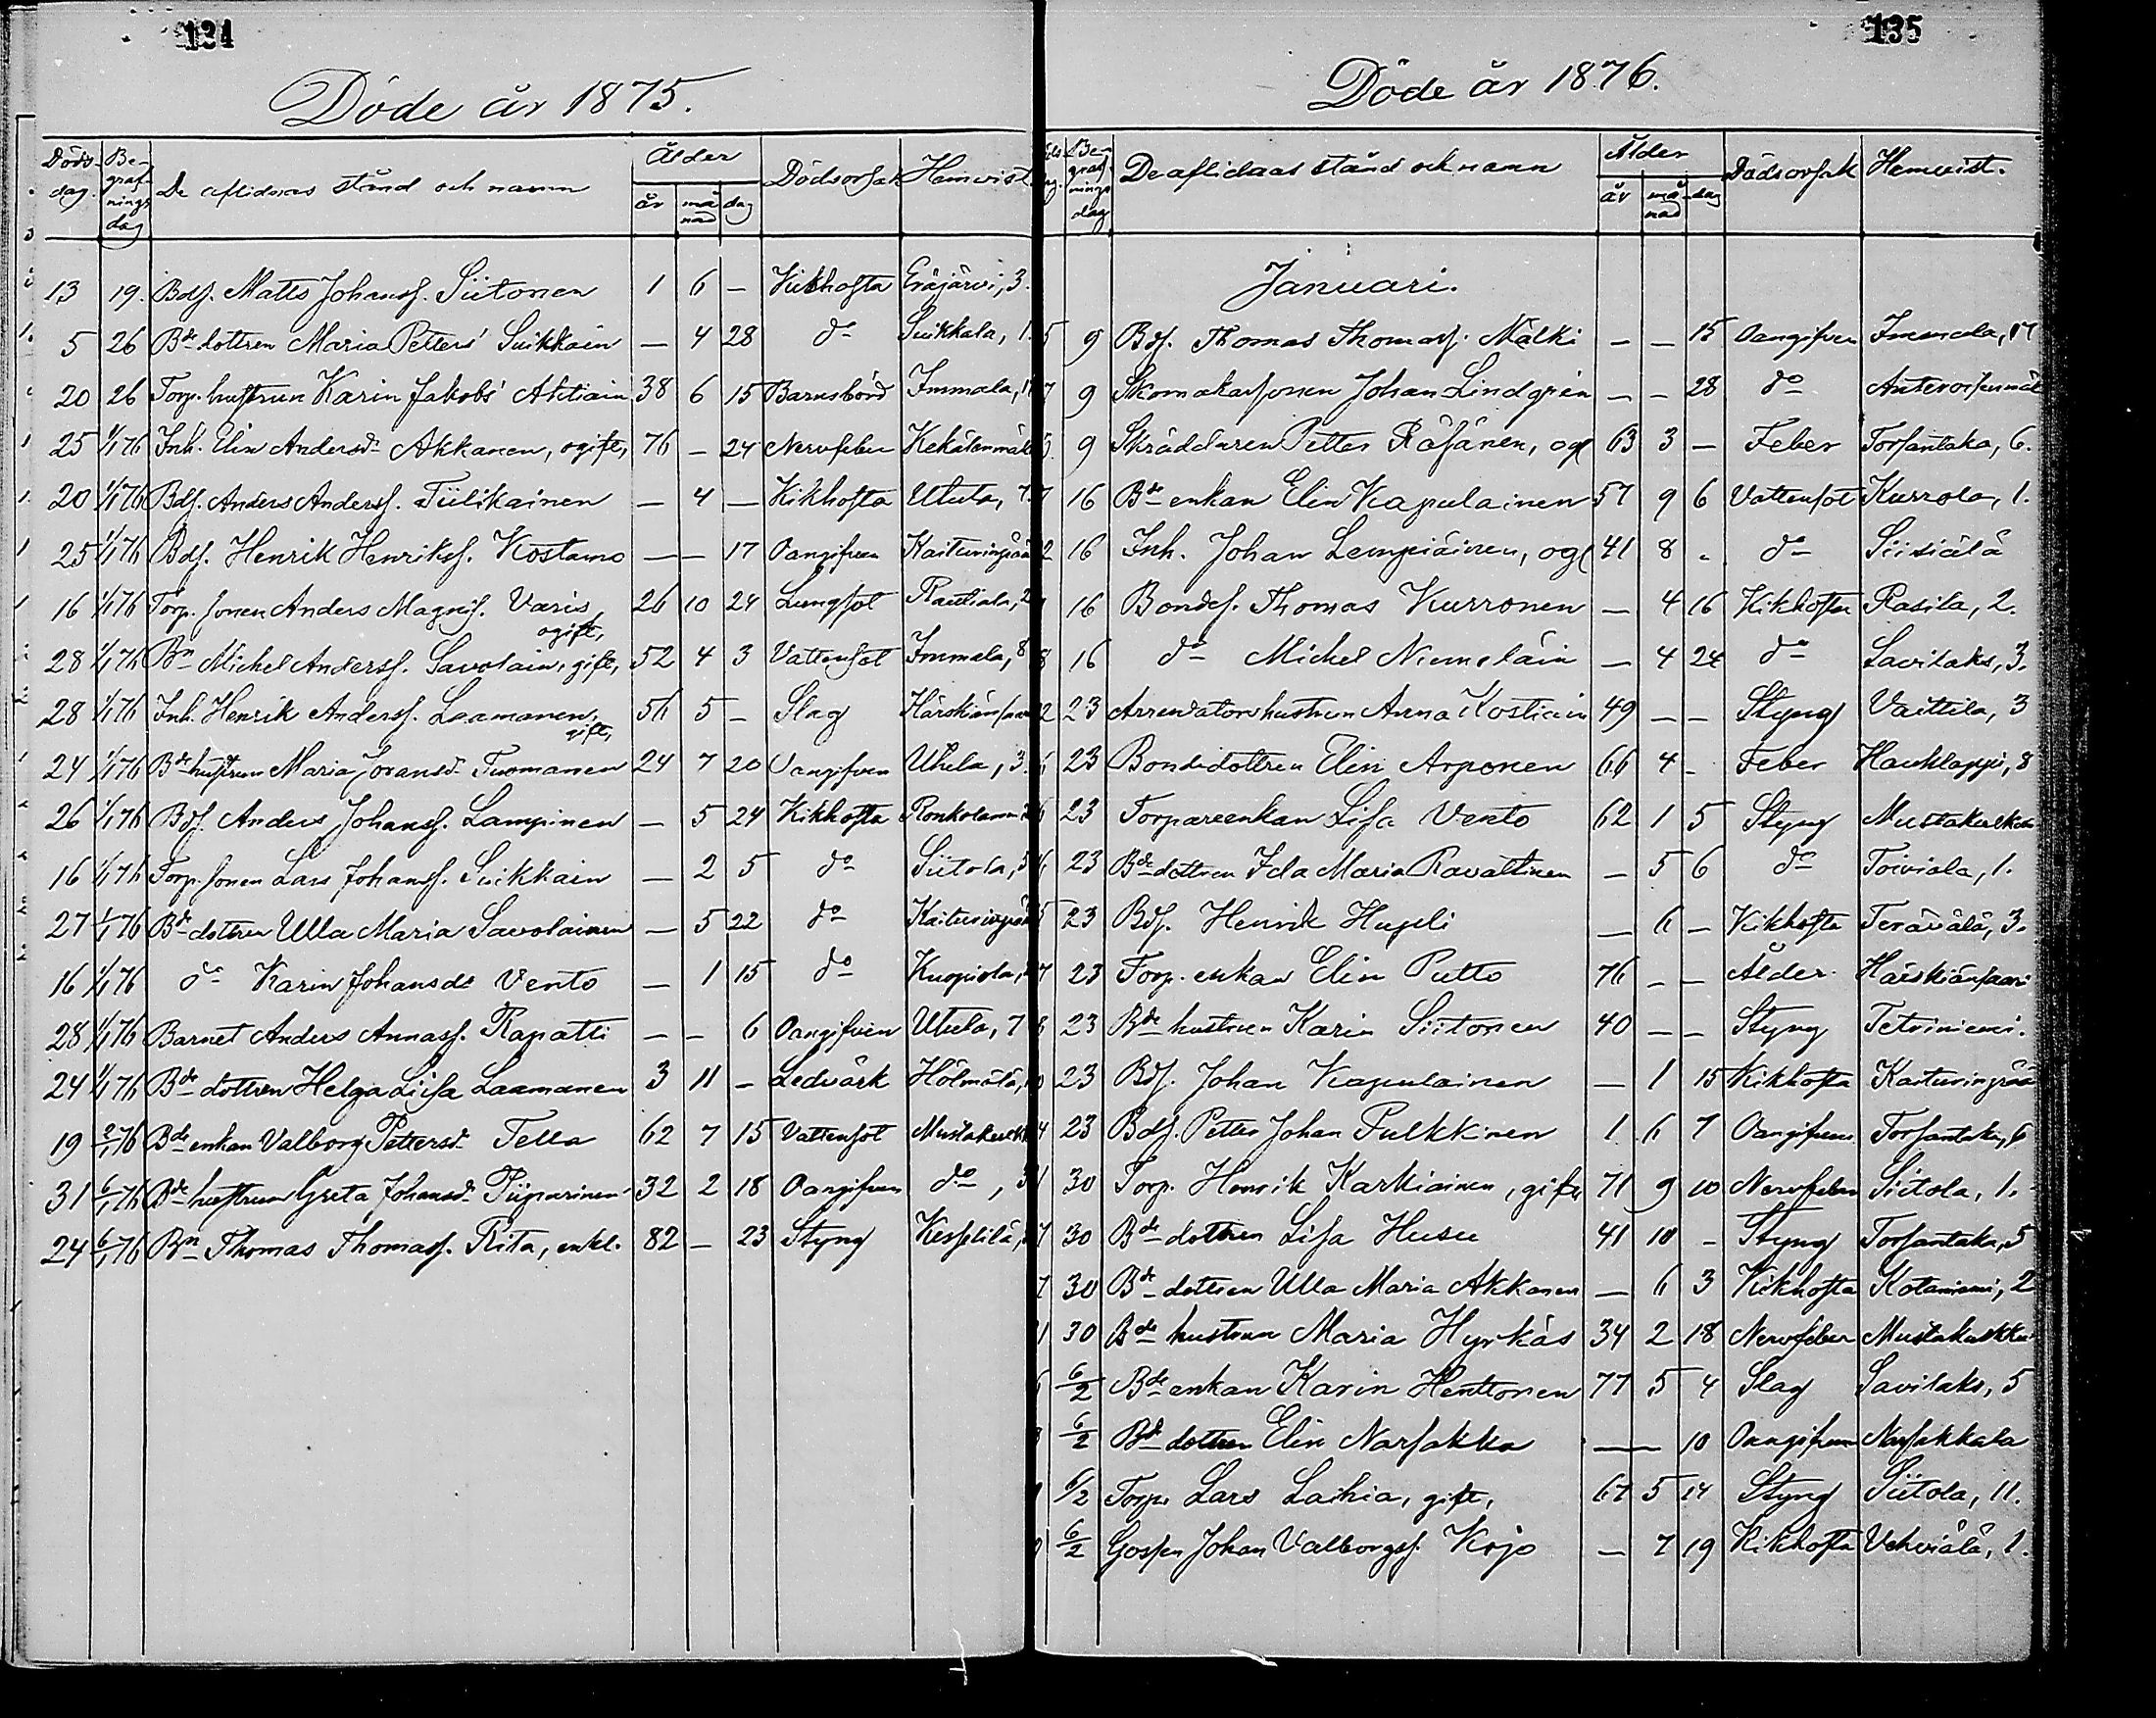 134
Döde år 1875.
Döds-dag. Be-grafnings dag De aflidnas stånd och namn Ålder år månad dag Dödsorsak Hemvist.
13 19. Bds. Matts Johanss. Siitonen 1 6 — Kikhosta Eräjärvi, 3.
5 26 Bde dottren Maria Petters' Suikkain — 4 28 do Suikkala, 1.
20 26 Torp. hustrun Karin Jakobs' Ahtiain 38 6 15 Barnsbörd Immala,
25 1/1 76 Inh. Elin Andersd. Akkanen, ogift, 76 — 24 Nervfeber Kekälenmäki
20 1/1 76 Bds. Anders Anderss. Tiilikainen — 4 — Kikhosta Utula, 7.
25 1/1 76 Bds. Henrik Henrikss. Kostamo — — 17 Oangifven
16 1/1 76 Torp. sonen Anders Magnis. Varis, ogift, 26 10 24 Lungsot Rautiala, 2
28 1/1 76 Bn Michel Anderss. Savolain, gift, 52 4 3 Vattensot Immala, 8
28 1/1 76 Inh. Henrik Anderss. Laamanen, gift, 56 5 — Slag Härskiänsaari
24 1/1 76 Bde hustrun Maria Göransd. Tuomanen 24 7 20 Oangifven Utula, 3.
26 1/1 76 Bds. Anders Johanss. Lampinen — 5 24 Kikhosta
16 1/1 76 Torp. sonen Lars Johanss. Suikkain — 2 5 do Siitola, 5
27 1/1 76 Bde dottren Ulla Maria Savolainen — 5 22 do
16 1/1 76 do Karin Johansd. Vento — 1 15 do
28 1/1 76 Barnet Anders Annass. Rapatti — — 6 Oangifven Utula, 7
24 1/1 76 Bde dottren Helga Lisa Laamanen 3 11 — Ledvärk
19 2/1 76 Bde enkan Valborg Pettersd. Tella 62 7 15 Vattensot
31 6/1 76 Bde hustrun Greta Johansd. Piiparinen 32 2 18 Oangifven do, 3
24 6/1 76 Bn Thomas Thomass. Rita, enkl. 82 — 23 Styng
135
Döde år 1876.
Be-grafnings dag De aflidnas stånd och namn Ålder år månad dag Dödsorsak Hemvist.
Januari.
5 9 Bds. Thomas Thomass. Mälki — — 15 Oangifven Immala, 17
7 9 Skomakarsonen Johan Lindgrén — — 28 do
5 9 Skräddaren Petter Räsänen, og 63 3 — Feber Torsantaka, 6.
7 16 Bde enkan Elin Kapulainen 57 9 6 Vattensot Kurrola, 1.
2 16 Inh. Johan Lempiäinen, og 41 8 — do Siisiälä
16 Bondes. Thomas Kurronen — 4 16 Kikhosta Rasila, 2.
8 16 do Michel Niemeläin — 4 24 do Savilaks, 3.
2 23 Arrendatorshustrun Anna Kostiain 49 — — Styng Vaittila, 3
6 23 Bondedottren Elin Arponen 66 4 — Feber Hauklappi, 8
6 23 Torpareenkan Lisa Vento 62 1 5 Styng
6 23 Bde dottren Ida Maria Ravattinen — 5 6 do Toiviala, 1.
5 23 Bds. Henrik Hupli — 6 — Kikhosta Terävälä, 3.
7 23 Torp. enkan Elin Putto 76 — — Ålder. Härskiänsaari
8 23 Bde hustrun Karin Siitonen 40 — — Styng Tetriniemi.
23 Bds. Johan Kapulainen — 1 15 Kikhosta
4 23 Bds. Petter Johan Pulkkinen 1 6 7 Oangifven Torsantaka, 6
30 Torp. Henrik Karkiainen, gift 71 9 10 Nervfeber Siitola, 1.
7 30 Bde dottren Lisa Husu 41 10 — Styng Torsantaka, 5
30 Bde dottren Ulla Maria Akkanen — 6 3 Kikhosta Kotaniemi, 2
30 Bde hustrun Maria Hyrkäs 34 2 18 Nervfeber
6/2 Bde enkan Karin Henttonen 77 5 4 Slag Savilaks, 5
6/2 Bde dottren Elin Narsakka — — 10 Oangifven Narsakkala
6/2 Torp. Lars Laihia, gift, 67 5 14 Styng Siitola, 11.
6/2 Gossen Johan Valborgss. Kojo — 7 19 Kikhosta Vehviälä, 1.